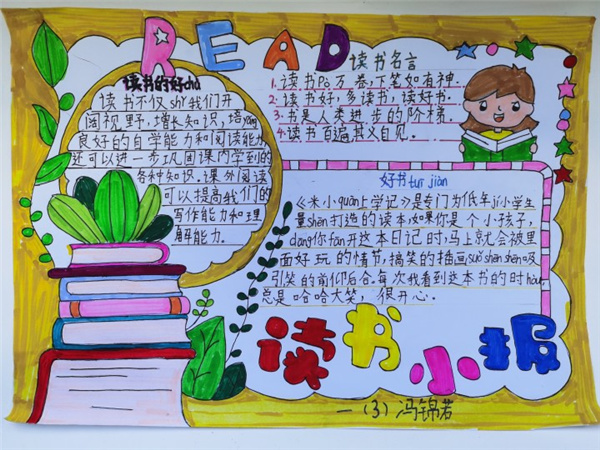 READ
读书的好chù
读书不仅shǐ我们开
阔视野,增长知识,培yǎng
良好的自学能力和阅读能力,
还可以进一步巩固课内学到的
各种知识.课外阅读
可以提高我们的
写作能力和理
解能力.
读书名言
1.读书pò万卷,下笔如有神.
2.读书好,多读书,读好书.
3.书是人类进步的阶梯.
4.读书百遍其义自见.
好书tuī jiàn
《米小quān上学记》是专门为低年jí小学生
量shēn打造的读本,如果你是个小孩子,
dāng你fān开这本日记时,马上就会被里
面好玩的情节,搞笑的插画suǒ shēn shēn吸
引笑的前仰后合.每次我看到这本书的时hòu,
总是哈哈大笑,很开心.
读书小报
一(3)冯锦若